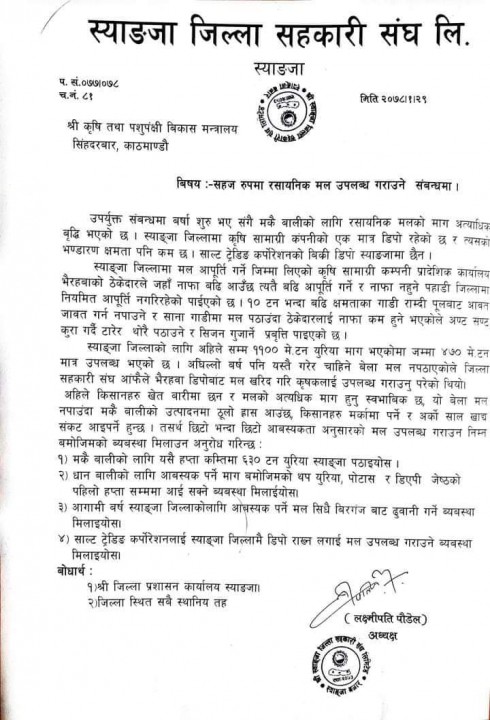 स्याङजा जिल्ला सहकारी संघ लि.
स्याङजा
प. सं.०७७।०७८
च.नं. ८१
मिति २०७८।१।२९
श्री कृषि तथा पशुपंक्षी विकास मन्त्रालय
सिंहदरबार, काठमाण्डौ
विषय :-सहज रुपमा रसायनिक मल उपलब्ध गराउने संबन्धमा ।
उपर्युक्त संबन्धमा बर्षा शुरु भए संगै मकै बालीको लागि रसायनिक मलको माग अत्याधिक
बृद्धि भएको छ । स्याङ्जा जिल्लामा कृषि सामाग्री कंपनीको एक मात्र डिपो रहेको छ र त्यसको
भण्डारण क्षमता पनि कम छ । साल्ट ट्रेडिङ कर्पोरेशनको बिकी डिपो स्याङजामा छैन ।
स्याङ्जा जिल्लामा मल आपूर्ति गर्ने जिम्मा लिएको कृषि सामाग्री कम्पनी प्रादेशिक कार्यालय
भैरहबाको ठेकेदारले जहाँ नाफा बढि आउँछ त्यतै बढि आपूर्ति गर्ने र नाफा नहुने पहाडी जिल्लामा
नियमित आपूर्ति नगरिरहेको पाईएको छ । १० टन भन्दा बढि क्षमताका गाडी राम्दी पूलबाट आवत
जावत गर्न नपाउने र साना गाडीमा मल पठाउँदा ठेकेदारलाई नाफा कम हुने भएकोले अण्ट सण्ट
कुरा गर्दै टारेर थोरै पठाउने र सिजन गुजार्ने प्रबृत्ति पाइएको छ ।
स्याङ्जा जिल्लाको लागि अहिले सम्म ११०० मे.टन युरिया माग भएकोमा जम्मा ४७० मे.टन
मात्र उपलब्ध भएको छ । अघिल्लो बर्ष पनि यस्तै गरेर चाहिने बेला मल नपठाएकोले जिल्ला
सहकारी संघ आफैले भैरहवा डिपोबाट मल खरिद गरि कृषकलाई उपलब्ध गराउनु परेको थियो।
अहिले किसानहरु खेत बारीमा छन र मलको अत्यधिक माग हुनु स्वभाबिक छ, यो बेला मल
नपाउंदा मकै बालीको उत्पादनमा ठूलो ह्रास आउंछ, किसानहरु मर्कामा पर्ने र अर्को साल खाद्य
संकट आइपर्ने हुन्छ । तसर्थ छिटो भन्दा छिटो आबस्यकता अनुसारको मल उपलब्ध गराउन निम्न
बमोजिमको ब्यवस्था मिलाउन अनुरोध गरिन्छ :
१) मकै बालीको लागि यसै हप्ता कम्तिमा ६३० टन युरिया स्याङ्जा पठाइयोस ।
२) धान बालीको लागि आबस्यक पर्ने माग बमोजिमको थप युरिया, पोटास र डिएपी जेष्ठको
पहिलो हप्ता सम्ममा आई सक्ने ब्यवस्था मिलाईयोस।
३) आगामी बर्ष स्याङ्जा जिल्लाकोलागि आबस्यक पर्ने मल सिधै बिरगंज बाट ढुवानी गर्ने ब्यवस्था
मिलाइयोस।
४) साल्ट ट्रेडिङ कर्पोरेशनलाई स्याङ्जा जिल्लामै डिपो राख्न लगाई मल उपलब्ध गराउने ब्यवस्था
मिलाइयोस।
बोधार्थ :
१)श्री जिल्ला प्रशासन कार्यालय स्याङजा।
२)जिल्ला स्थित सबै स्थानिय तह
(लक्ष्मीपति पौडेल)
अध्यक्ष